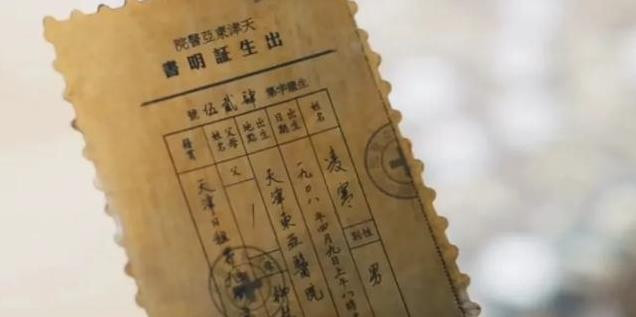 天津東亞醫院
出生証明書
生產字第肆貳伍號
姓名
凌寒
性別
男
出生日期
一九〇八年四月九日上午八時
出生地點
天津東亞醫院
父母姓名
父
母
籍貫
天津日租界